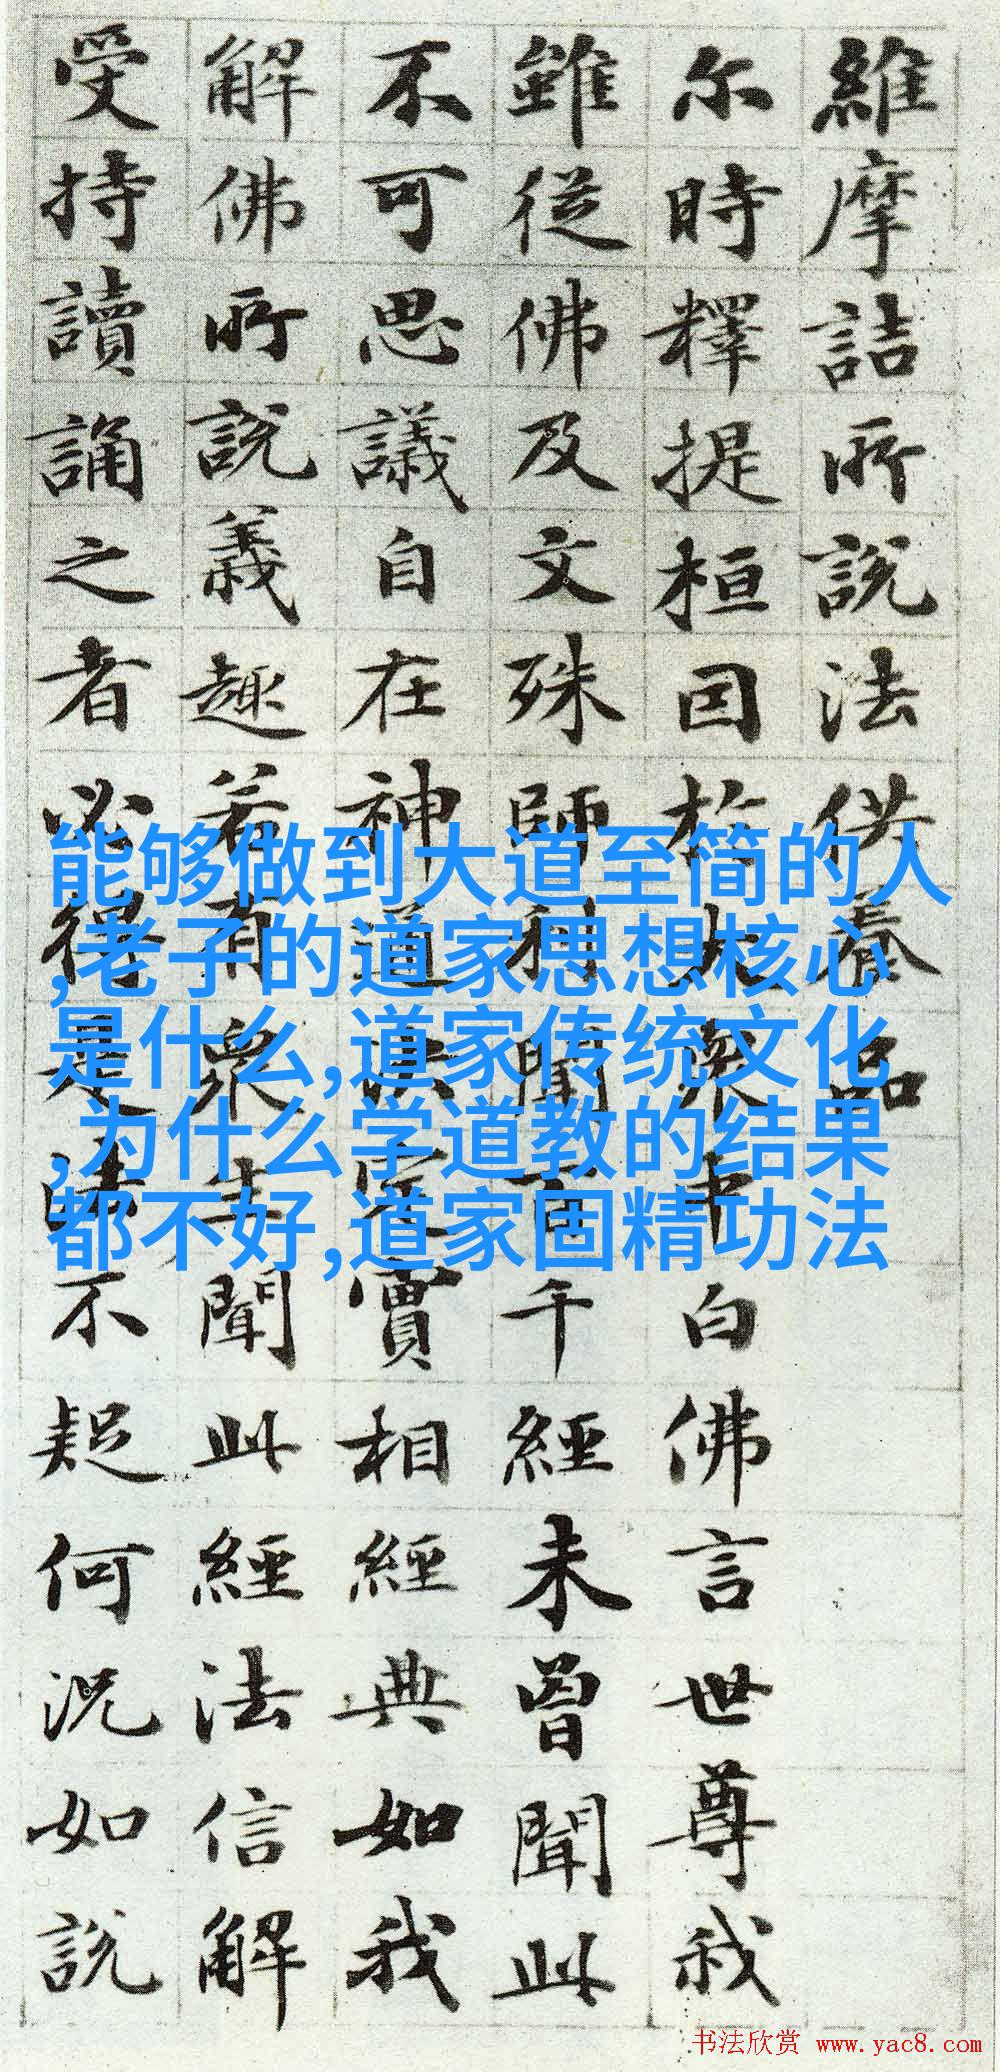 維摩詰所說法供養品
尒時釋提桓因於大衆中白佛言世尊我
雖從佛及文殊師利聞百千經未曾聞此
不可思議自在神通決定實相經典如我
解佛所說義趣若有衆生聞此經法信解
受持讀誦之者必得是法不疑何況如說
能够做到大道至简的人
,老子的道家思想核心
是什么,道家传统文化
,为什么学道教的结果
都不好,道家固精功法
书法欣赏 www.yac8.com